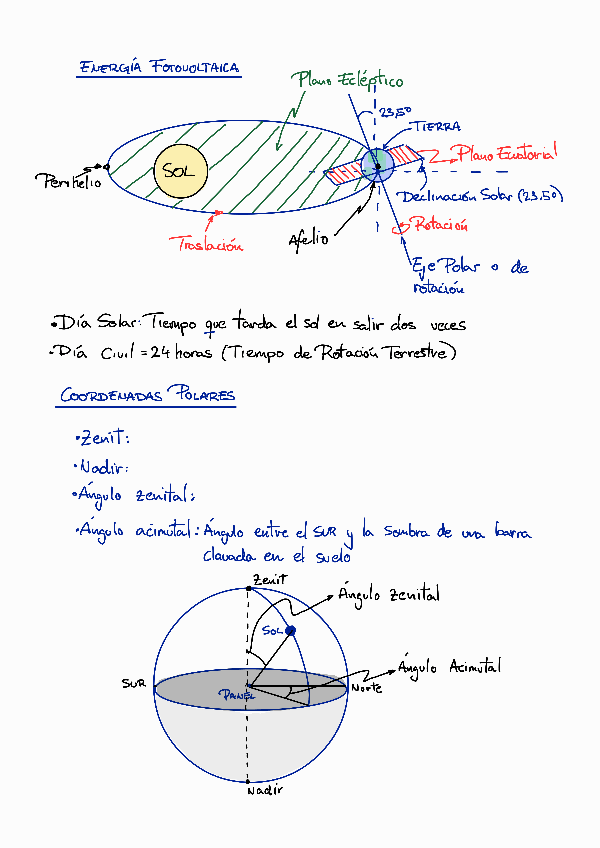 ENERGÍA FOTOVOLTAICA
Plano Ecléptico
23,5º
TIERRA
Plano Ecuatorial
SOL
Perihelio
Declinación Solar (23,5º)
Rotación
Traslación
Afelio
Eje Polar o de
rotación
•Día Solar: Tiempo que tarda el sol en salir dos veces
-Día Civil = 24 horas (Tiempo de Rotación Terrestre)
COORDENADAS POLARES
•Zenit:
•Nadir:
•Ángulo zenital:
•Ángulo acimutal: Ángulo entre el SUR y la sombra de una barra
clavada en el suelo
Zenit
Ángulo Zenital
SOL
Ángulo Acimutal
SUR
PANEL
Norte
Nadir